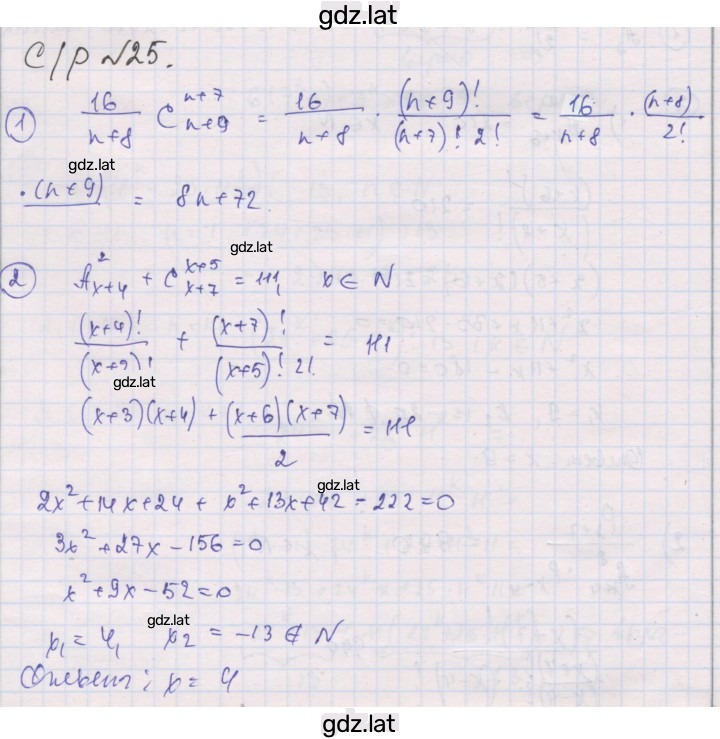 gdz.lat
С/р №25.
gdz.lat
1) 16/(n+8) C_{n+9}^{n+7} = 16/(n+8) · (n+9)!/((n+7)! 2!) = 16/(n+8) · (n+8)/2! ·
gdz.lat
· (n+9) = 8n+72.
gdz.lat
2) A_{x+4}^{2} + C_{x+7}^{x+5} = 111, x ∈ N
(x+4)!/(x+2)! + (x+7)!/((x+5)! 2!) = 111
gdz.lat
(x+3)(x+4) + (x+6)(x+7)/2 = 111
gdz.lat
2x²+14x+24 + x²+13x+42 - 222=0
3x²+27x-156=0
x²+9x-52=0
gdz.lat
x₁=4, x₂ = -13 ∉ N
Ответ: x= 4
gdz.lat